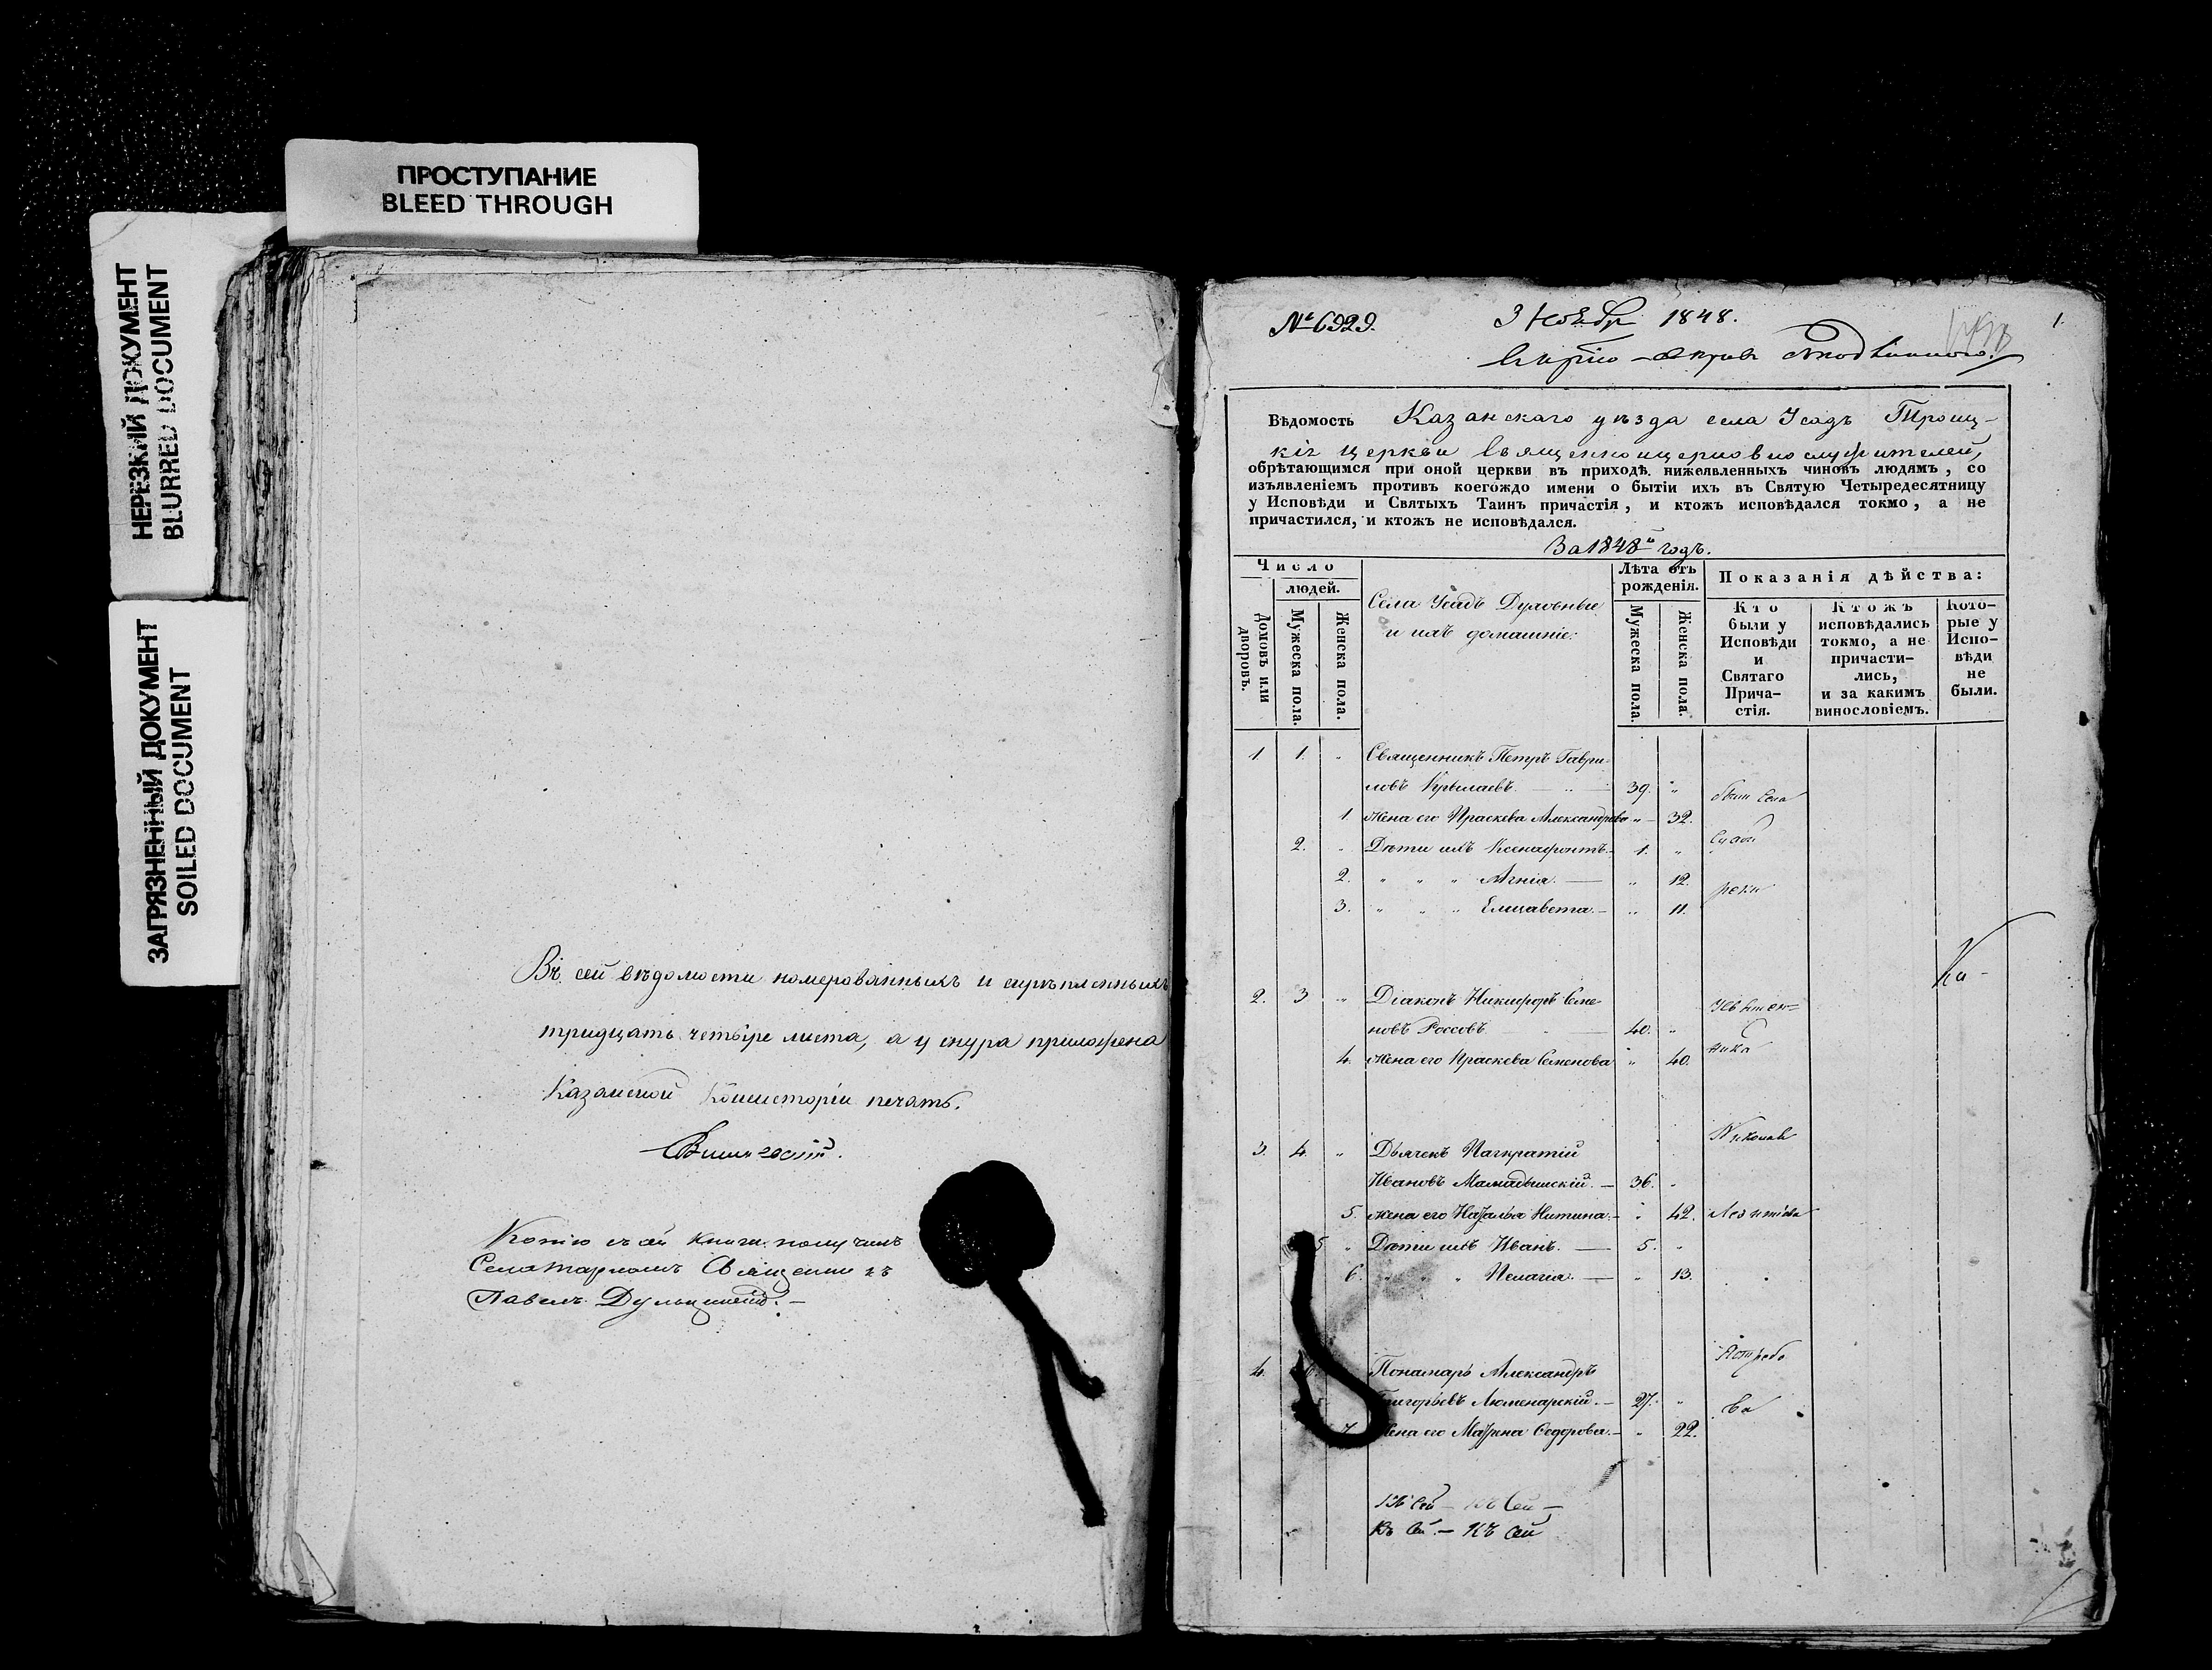 ПРОСТУПАНИЕ
BLEED THROUGH
НЕРЕЗКИЙ ДОКУМЕНТ
BLURRED DOCUMENT
ЗАГРЯЗНЕННЫЙ ДОКУМЕНТ
SOILED DOCUMENT
Въ сей вѣдомости номерованныхъ и скрѣпленныхъ
тридцать четыре листа, а у снура приложена
Казанской Консисторіи печать.
Копію съ сей книги получилъ
Села Священникъ
Павелъ
№ 6929.
3 Ноября 1848.
1.
Вѣдомость Казанскаго уѣзда села Усадъ Троиц-
кія церкви священноицерковнослужителей,
обрѣтающимся при оной церкви въ приходѣ нижеявленныхъ чиновъ людямъ, со
изъявленіемъ противъ коегождо имени о бытіи ихъ въ Святую Четыредесятницу
у Исповѣди и Святыхъ Таинъ причастія, и ктожъ исповѣдался токмо, а не
причастился, и ктожъ не исповѣдался.
За 1848й годъ.
Число
людей.
Домовъ или дворовъ.
Мужеска пола.
Женска пола.
Села Усадъ Духовные
и ихъ домашніе:
Лѣта отъ
рожденія.
Мужеска пола.
Женска пола.
Показанія дѣйства:
Кто
были у
Исповѣди
и
Святаго
Прича-
стія.
Ктожъ
исповѣдались
токмо, а не
причасти-
лись,
и за какимъ
винословіемъ.
Кото-
рые у
Испо-
вѣди
не
были.
1. 1. „ Священникъ Петръ Гаври-
ловъ — „ — 39. „
1. Жена его Праскева Александрова „ 32.
2. „ Дѣти ихъ Ксенафонтъ. 1. „
2. „ „ „ Агнія. — „ 12.
3. „ „ „ Елисавета. — „ 11.
Ка-
2. 3 „ Діаконъ Никифоръ Семе-
новъ Россовъ — „ — 40. „
4. Жена его Праскева Семенова „ 40.
3. 4. „ Дьячекъ Панкратій
Ивановъ Мамадышскій. — 36. „
5. Жена его Наталья Никитина. „ 42.
5 „ Дѣти ихъ Иванъ. — 5. „
6. „ „ „ Пелагія. — „ 13.
4. 6. Пономарь Александръ
Григорьевъ — 27. „
7. Жена его Матрена Федорова. — „ 22.
Къ сей — Къ сей —
Къ сей — Къ сей